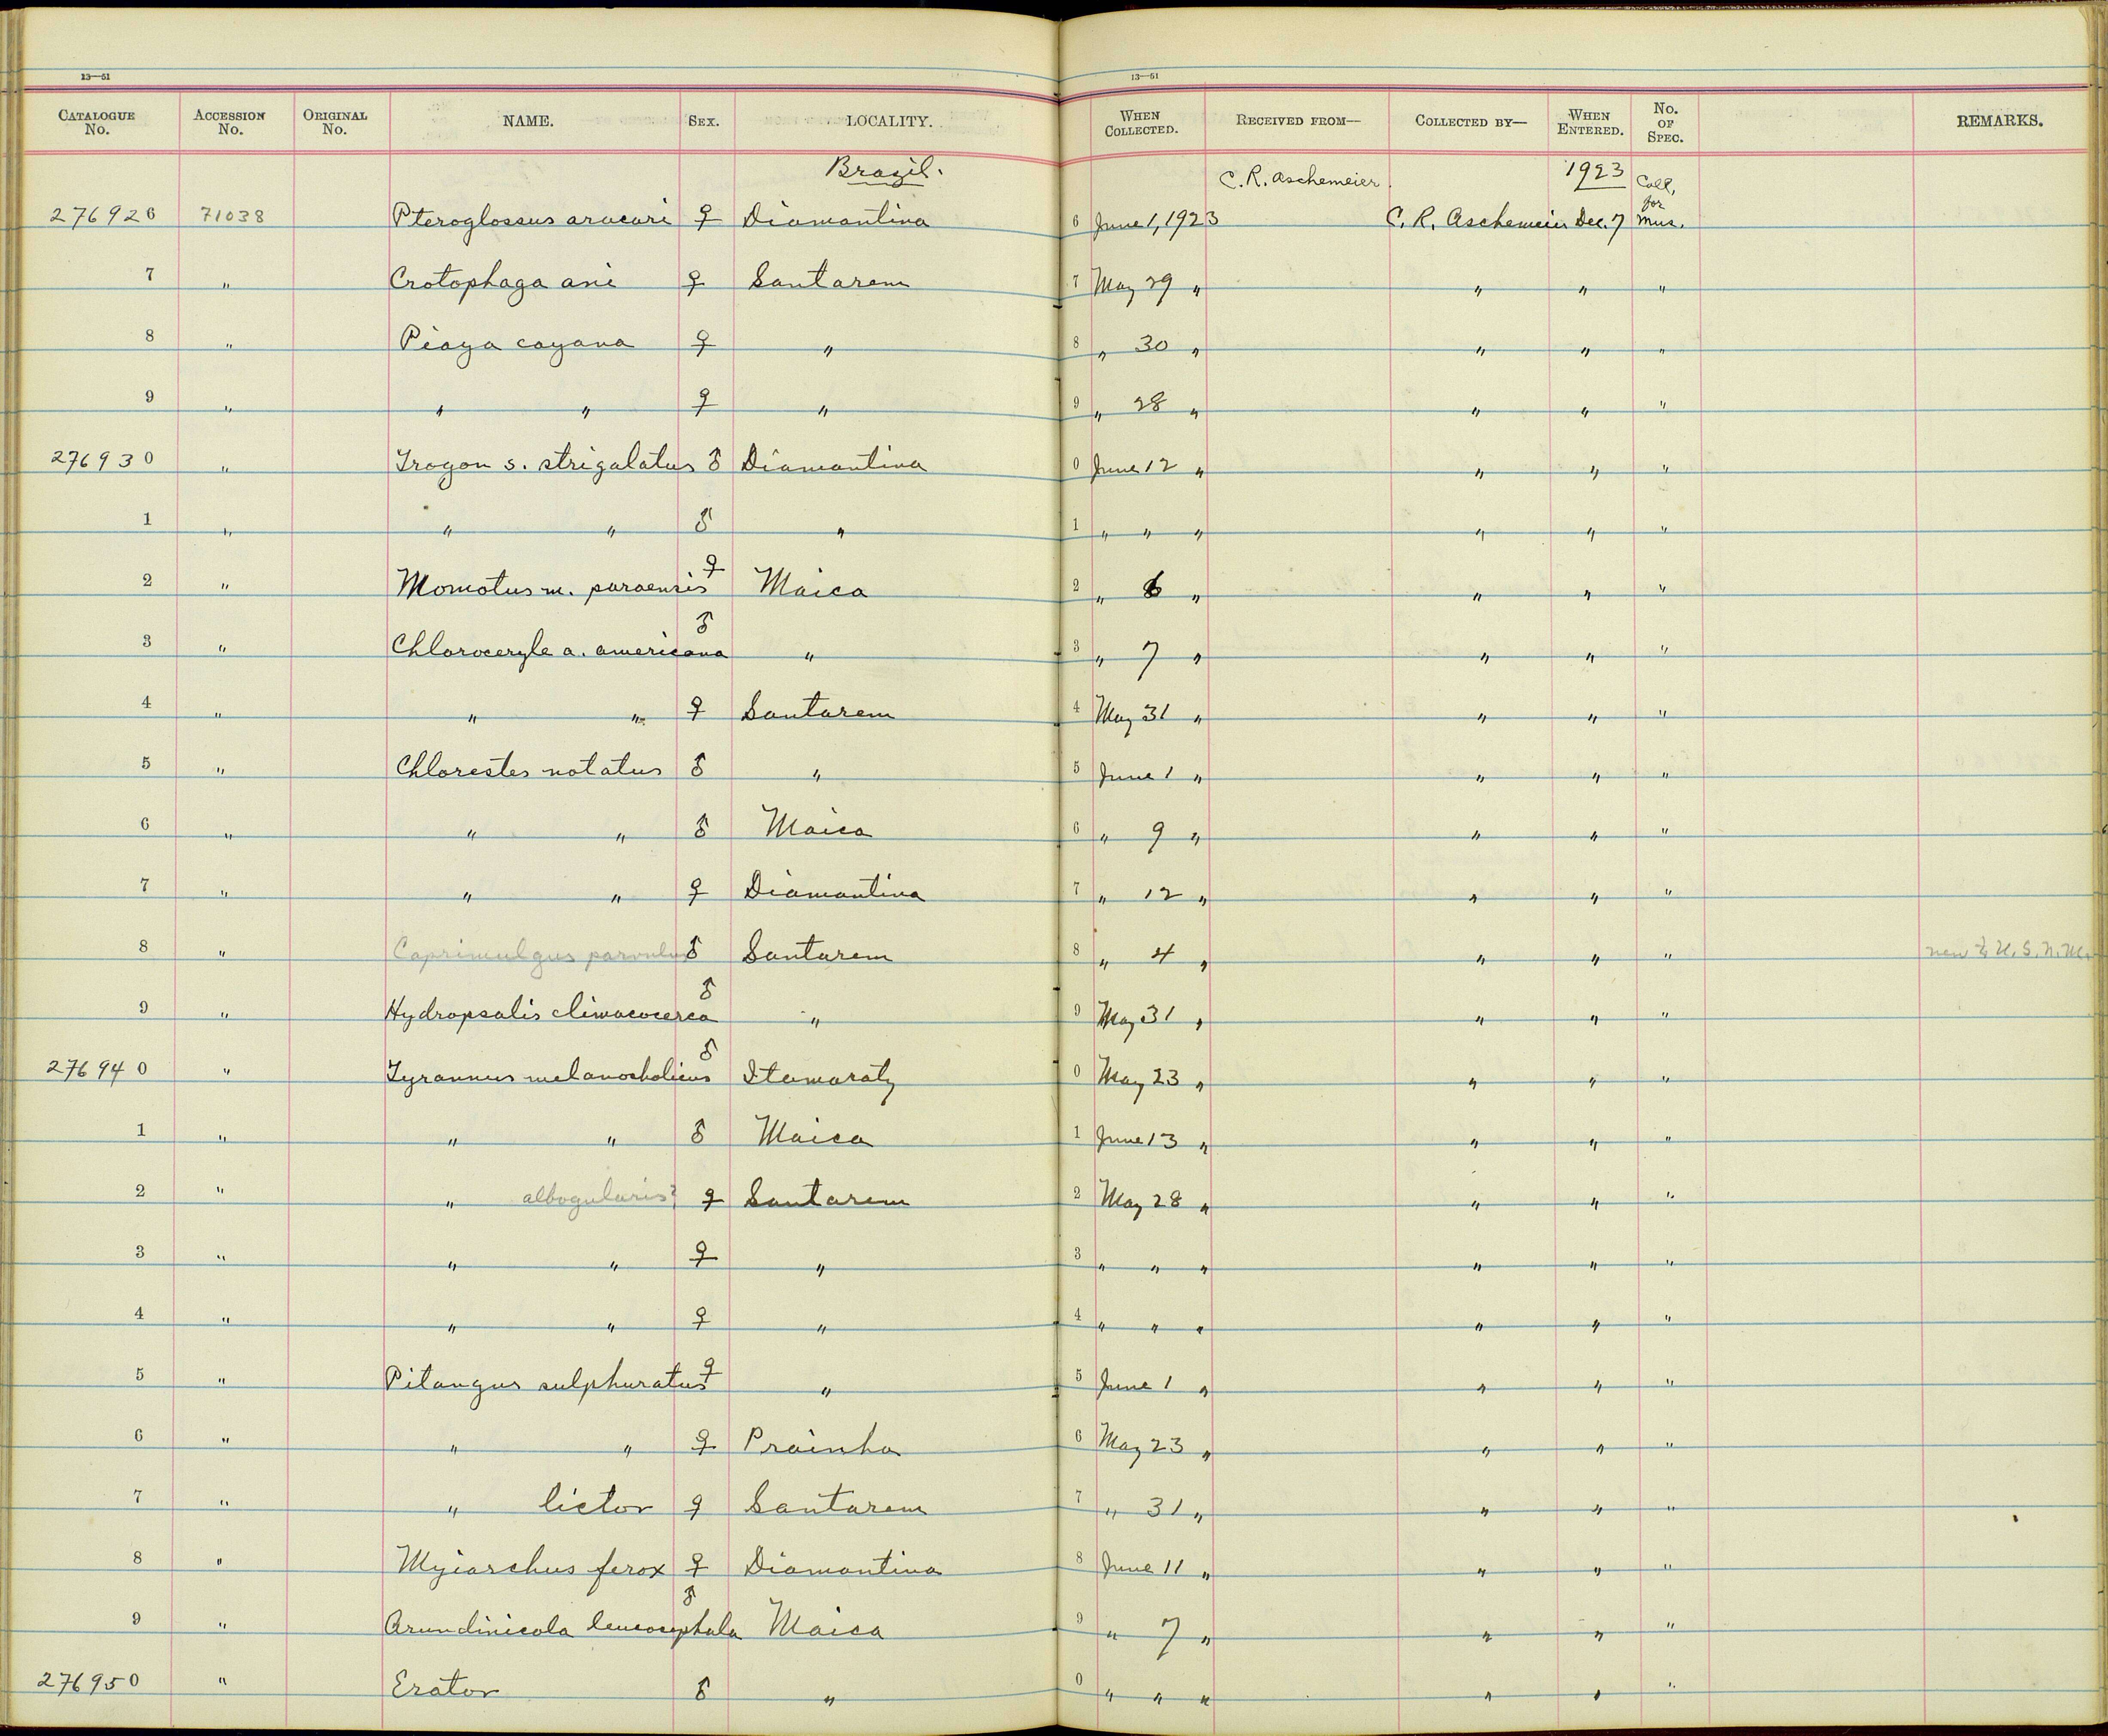 13—51
13—51
CATALOGUE No. ACCESSION No. ORIGINAL No. NAME. SEX. LOCALITY. WHEN COLLECTED. RECEIVED FROM— COLLECTED BY— WHEN ENTERED. No. OF SPEC. REMARKS.
Brazil. C. R. Aschemeier. 1923 Coll. for
276926 71038 Pteroglossus aracari ♀ Diamantina 6 June 1, 1923 C. R. Aschemeier Dec. 7 Mus.
7 " Crotophaga ani ♀ Santarem 7 May 29 " " " "
8 " Piaya cayana ♀ " 8 " 30 " " " "
9 " " " ♀ " 9 " 28 " " " "
276930 " Trogon s. strigalatus ♂ Diamantina 0 June 12 " " " "
1 " " " ♂ " 1 " " " " " "
2 " Momotus m. paraensis ♀ Maica 2 " 6 " " " "
3 " Chloroceryle a. americana ♂ " 3 " 7 " " " "
4 " " " ♀ Santarem 4 May 31 " " " "
5 " Chlorestes notatus ♂ " 5 June 1 " " " "
6 " " " ♂ Maica 6 " 9 " " " "
7 " " " ♀ Diamantina 7 " 12 " " " "
8 " Caprimulgus parvulus ♂ Santarem 8 " 4 " " " " new to U. S. N. M.
9 " Hydropsalis climacocerca ♂ " 9 May 31 " " " "
276940 " Tyrannus melanocholicus ♂ Itamaraty 0 May 23 " " " "
1 " " " ♂ Maica 1 June 13 " " " "
2 " " albogularis? ♀ Santarem 2 May 28 " " " "
3 " " " ♀ " 3 " " " " " "
4 " " " ♀ " 4 " " " " " "
5 " Pitangus sulphuratus ♀ " 5 June 1 " " " "
6 " " " ♀ Prainha 6 May 23 " " " "
7 " " lictor ♀ Santarem 7 " 31 " " " "
8 " Myiarchus ferox ♀ Diamantina 8 June 11 " " " "
9 " Arundinicola leucocephala ♂ Maica 9 " 7 " " " "
276950 " Erator ♂ " 0 " " " " " "